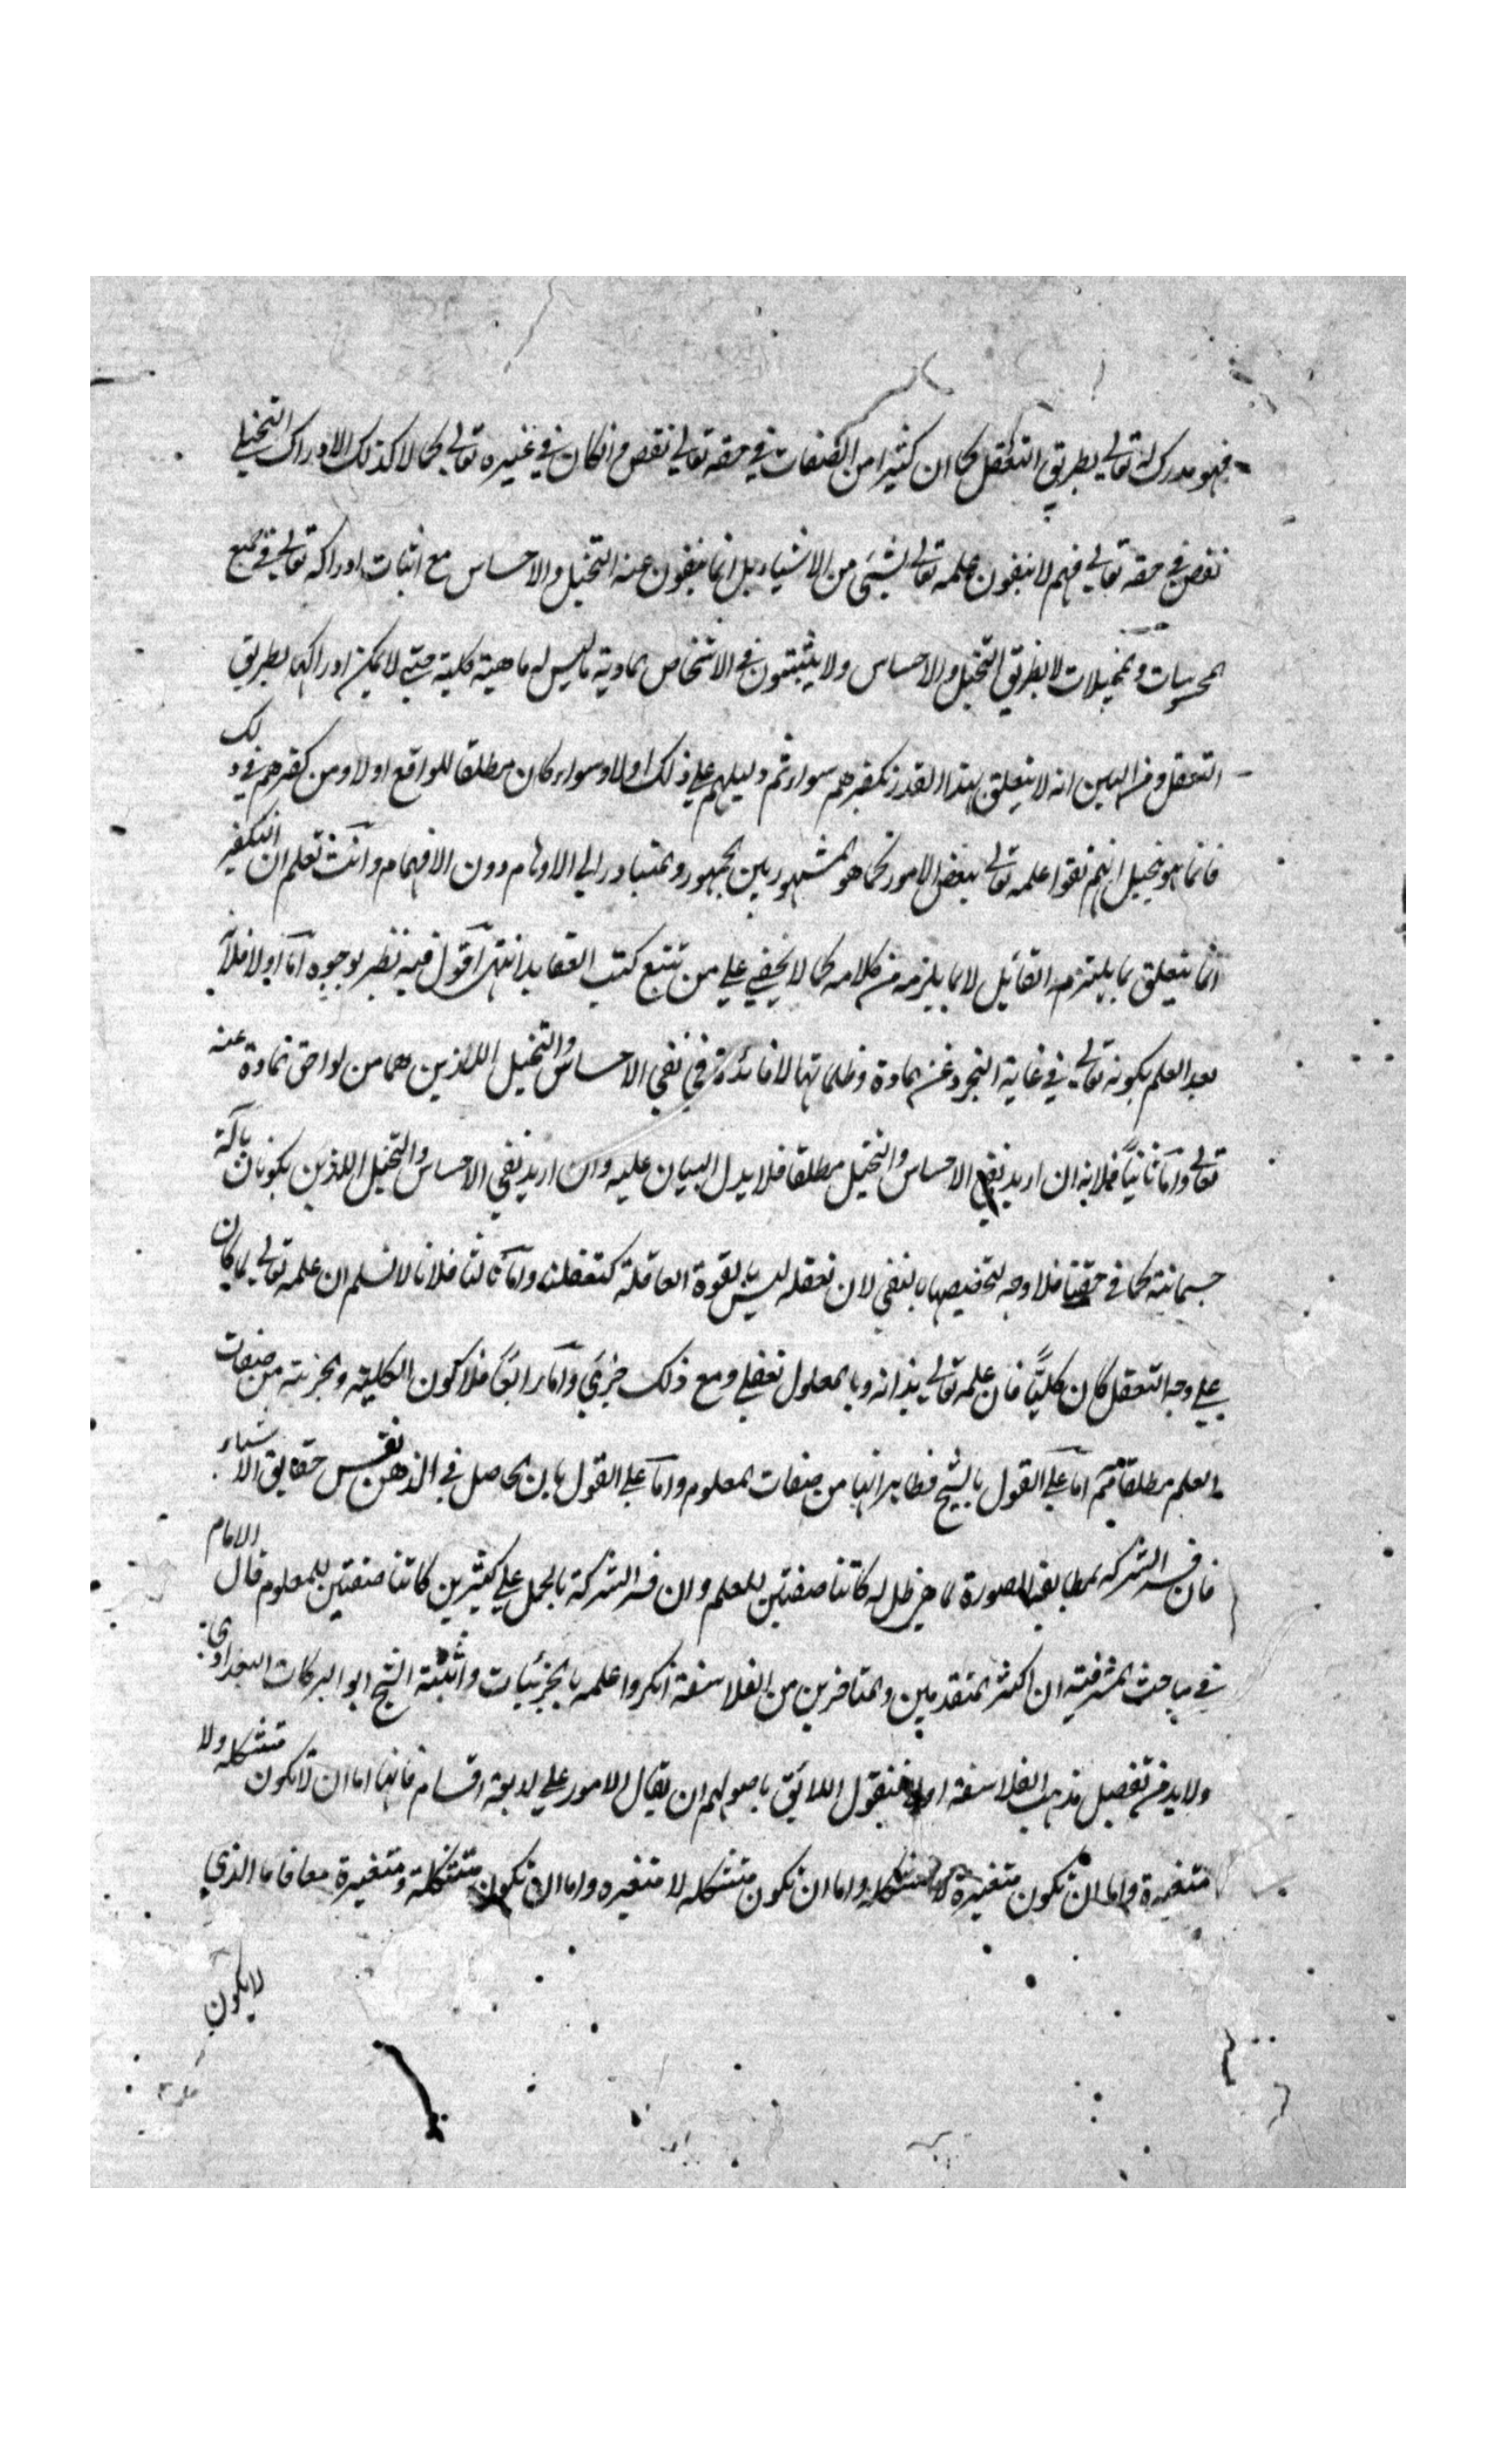 فهو مدرك له تعالى بطريق التعقل كما ان كثيرا من الصفات في حقه تعالى نقص وانكان في غيره تعالى كمالا كذلك الادراك التخيلي
نقص في حقه تعالى فهم لا ينفون علمه تعالى بشيئ من الاشياء بل انما ينفون عنه التخيل والاحساس مع اثبات ادراكه تعالى في جميع
المحسوسات والمتخيلات لا بطريق التخيل والاحساس ولا يثبتون في الاشخاص المادية ما ليس له ماهية كلية حتى لا يمكن ادراكها بطريق
التعقل ومن البين انه لا يتعلق بهذا القدر تكفيرهم سواء تم دليلهم على ذلك اولا وسواء كان مطلقا للواقع اولا ومن كفرهم في ذلك
فانما هو بتخيل انهم نفوا علمه تعالى ببعض الامور كما هو المشهور بين الجمهور والمتبادر الى الاوهام دون الافهام وانت تعلم ان التكفير
انما يتعلق بما يلتزمه القائل لا بما يلزم من كلامه كما لا يخفى على من تتبع كتب العقايد انتهى اقول فيه نظر بوجوه اما اولا فلانه
بعد العلم بكونه تعالى في غاية التجرد عن المادة وظلماتها لا فائدة في نفي الاحساس والتخيل اللذين هما من لواحق المادة عنه
تعالى واما ثانياً فلانه ان اريد نفي الاحساس والتخيل مطلقا فلا يدل البيان عليه وان اريد نفي الاحساس والتخيل اللذين يكونان بآلة
جسمانية كما في حقنا فلا وجه لتخصيصها بالنفي لان تعقله ليس بالقوة العاقلة كتعقلنا واما ثالثا فلانا لا نسلم ان علمه تعالى لما كان
على وجه التعقل كان كلياً فان علمه تعالى بذاته وبالمعلول تعقلي ومع ذلك جزئي واما رابعاً فلا كون الكلية والجزئية من صفات
العلم مطلقا ثم اما على القول بالشبح فظاهر انها من صفات المعلوم واما على القول بان الحاصل في الذهن نفس حقايق الاشياء
فان فسر الشركة بمطابقة الصورة لما هي ظل له كانتا صفتين للعلم وان فسر الشركة بالحمل على كثيرين كانتا صفتين للمعلوم قال الامام
في مباحث المشرقية ان اكثر المتقدمين والمتاخرين من الفلاسفة انكروا علمه بالجزئيات واثبته الشيخ ابو البركات البغدادي
ولابد من تفصيل مذهب الفلاسفة اولا فنقول اللائق باصولهم ان يقال الامور على اربعة اقسام فانها اما ان لا تكون متشكلة ولا
متغيرة واما ان تكون متغيرة لا متشكلة واما ان تكون متشكله لا متغيره واما ان تكون متشكلة ومتغيرة معا فاما الذي
لا يكون